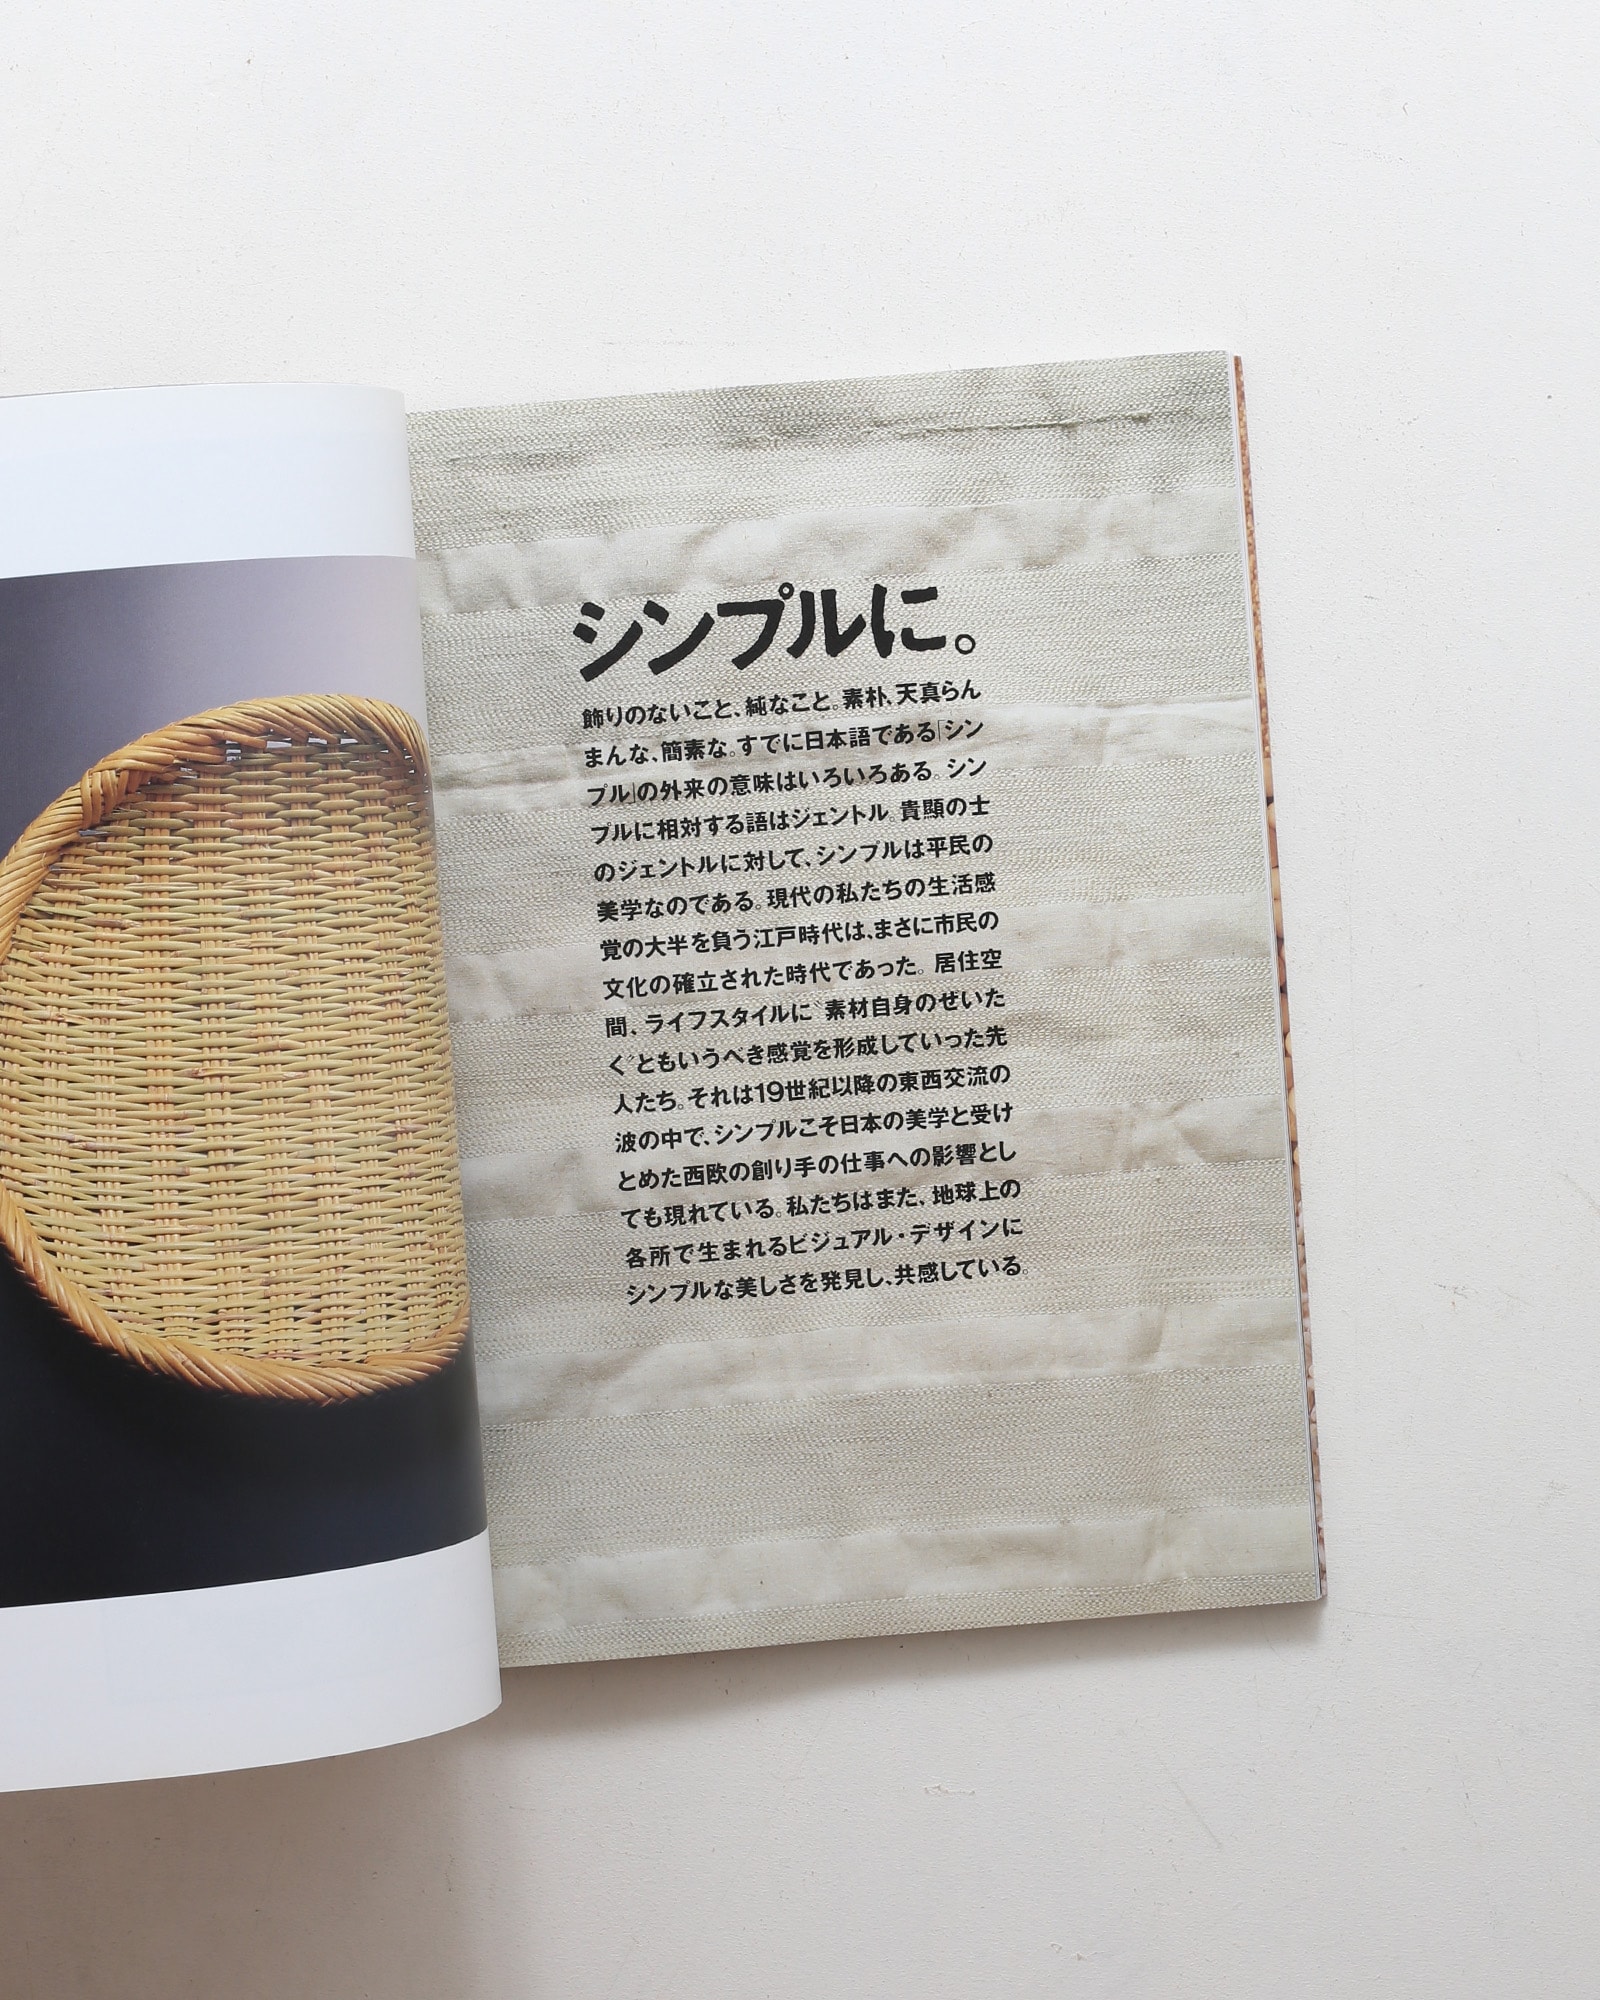 シンプルに。
飾りのないこと、純なこと。素朴、天真らん
まんな、簡素な。すでに日本語である「シン
プル」の外来の意味はいろいろある。シン
プルに相対する語はジェントル。貴顕の士
のジェントルに対して、シンプルは平民の
美学なのである。現代の私たちの生活感
覚の大半を負う江戸時代は、まさに市民の
文化の確立された時代であった。居住空
間、ライフスタイルに〝素材自身のぜいた
く〟ともいうべき感覚を形成していった先
人たち。それは19世紀以降の東西交流の
波の中で、シンプルこそ日本の美学と受け
とめた西欧の創り手の仕事への影響とし
ても現れている。私たちはまた、地球上の
各所で生まれるビジュアル・デザインに
シンプルな美しさを発見し、共感している。